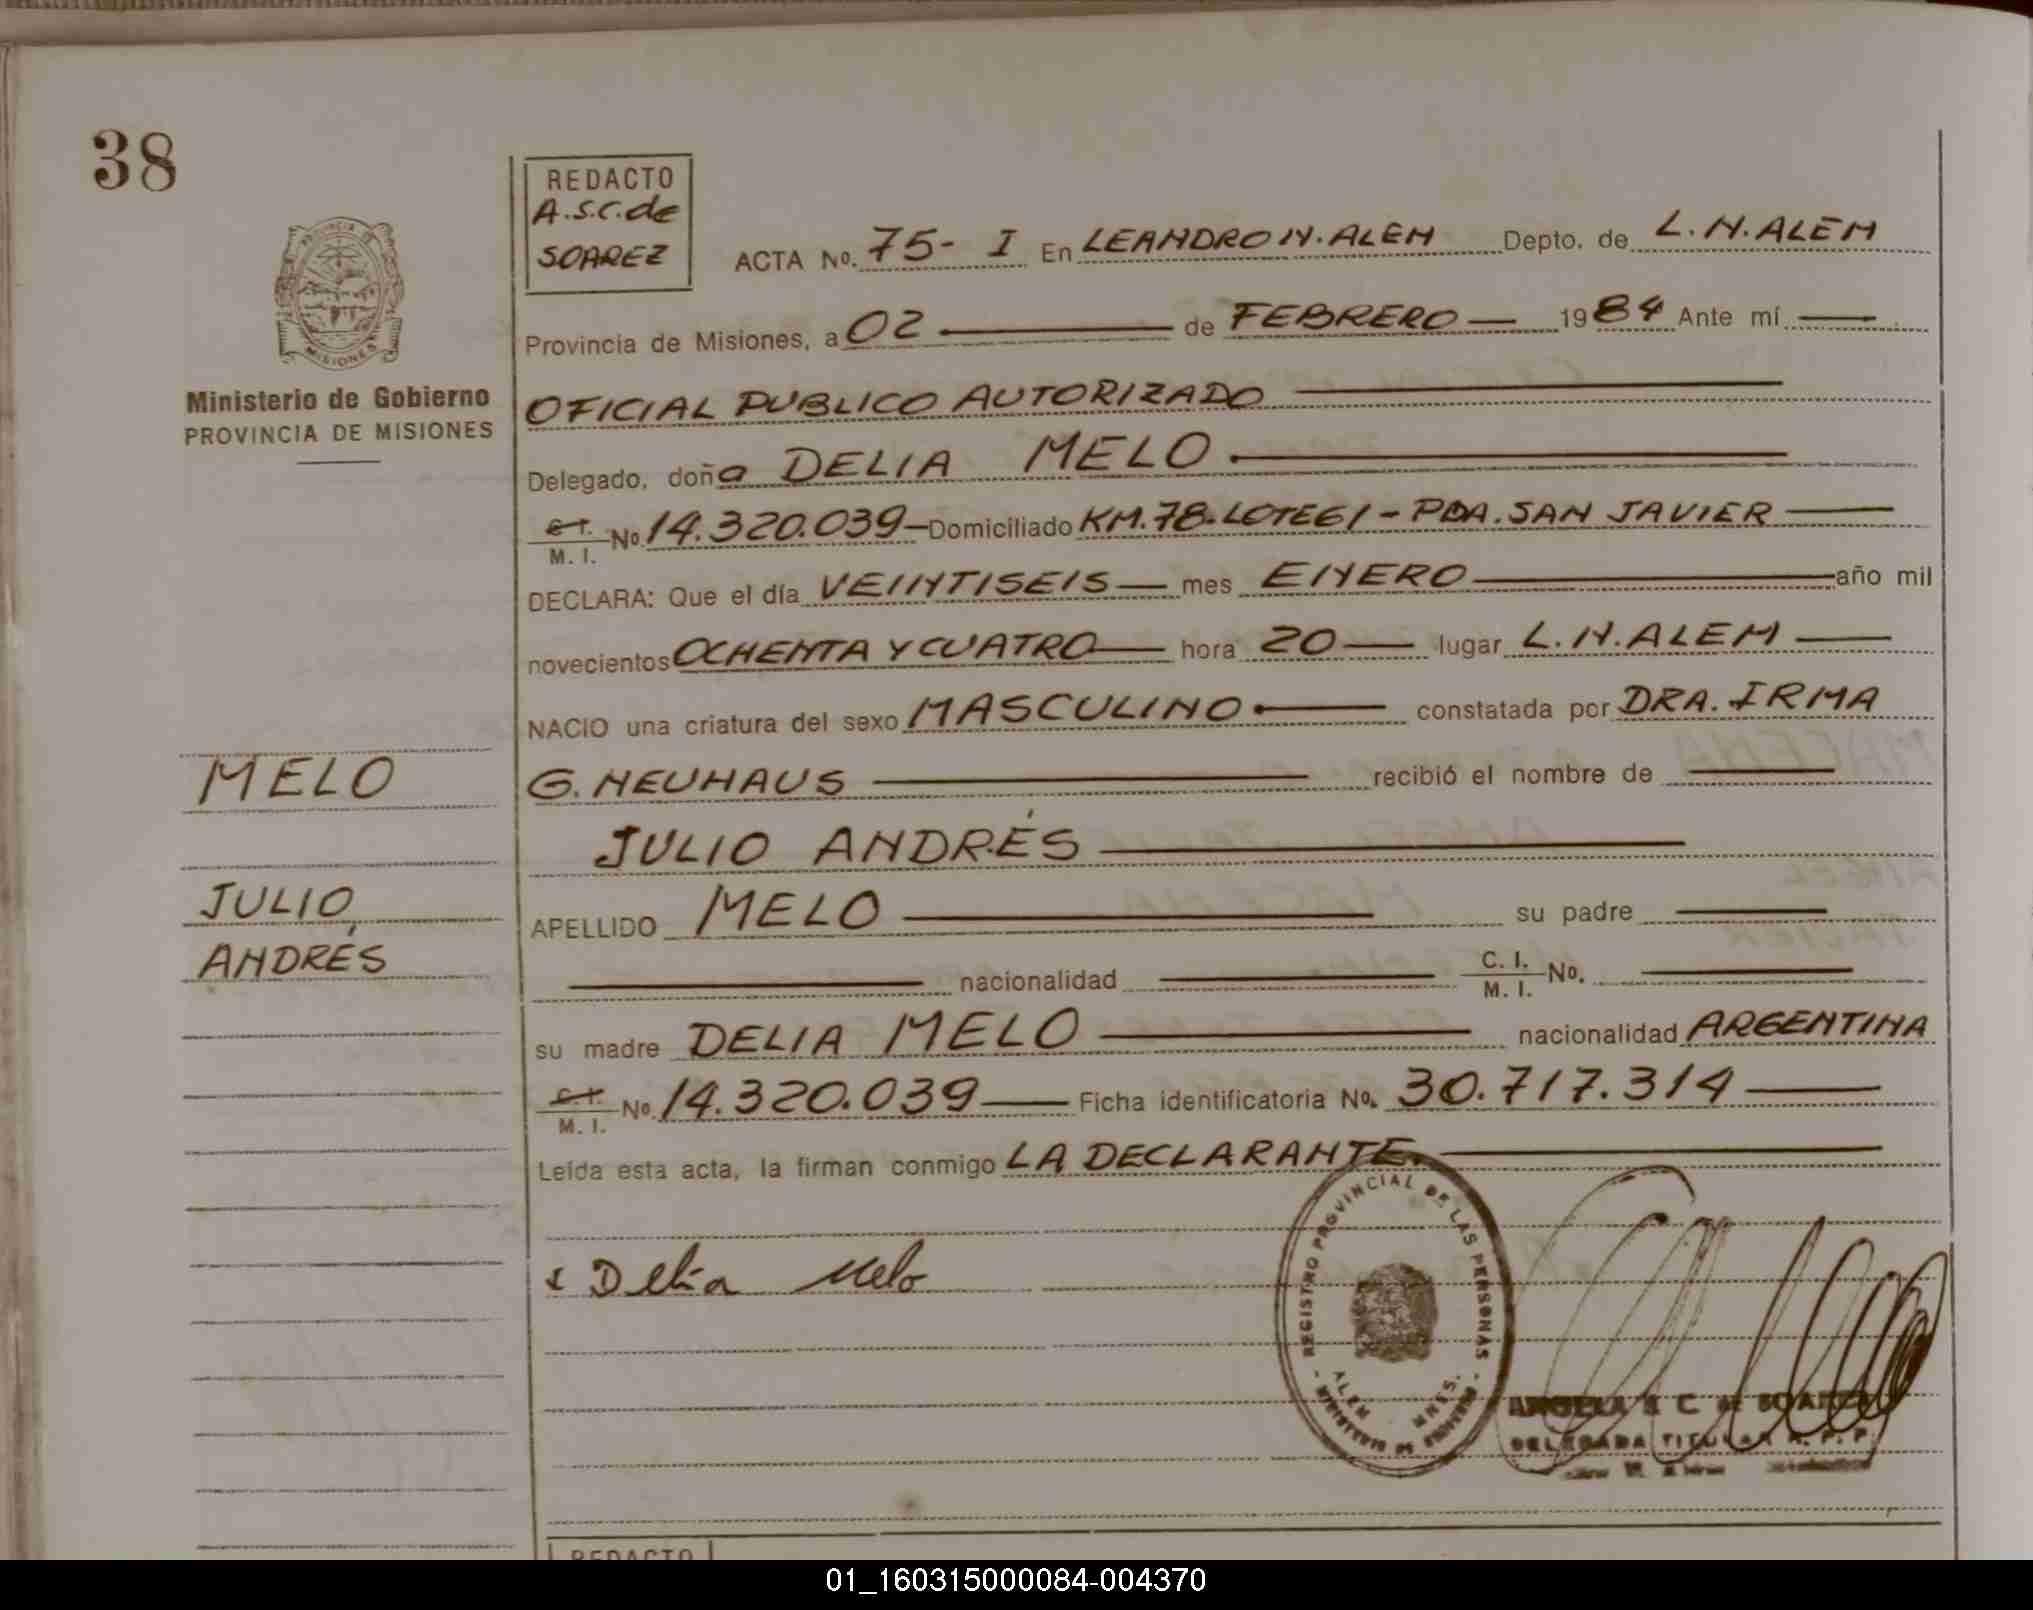 38
REDACTO
A.S.C. de
SOAREZ
ACTA No. 75- I En LEANDRO N. ALEM Depto. de L. N. ALEM
PROVINCIA DE
MISIONES
Ministerio de Gobierno
PROVINCIA DE MISIONES
Provincia de Misiones, a 02 de FEBRERO 1984 Ante mí
OFICIAL PUBLICO AUTORIZADO
Delegado, doña DELIA MELO
C.I. / M. I. No. 14.320.039 Domiciliado KM. 78. LOTE 61 - PDA. SAN JAVIER
DECLARA: Que el día VEINTISEIS mes ENERO año mil
novecientos OCHENTA Y CUATRO hora 20 lugar L. N. ALEM
NACIO una criatura del sexo MASCULINO constatada por DRA. IRMA
G. NEUHAUS recibió el nombre de
JULIO ANDRÉS
APELLIDO MELO su padre
nacionalidad C. I. / M. I. No.
su madre DELIA MELO nacionalidad ARGENTINA
C.I. / M. I. No. 14.320.039 Ficha identificatoria No. 30.717.314
Leída esta acta, la firman conmigo LA DECLARANTE.
MELO
JULIO
ANDRÉS
x Delia Melo
REGISTRO PROVINCIAL DE LAS PERSONAS
ALEM MNES.
ANGELA S. C. de SOAREZ
DELEGADA TITULAR R. P. P.
REDACTO
01_160315000084-004370